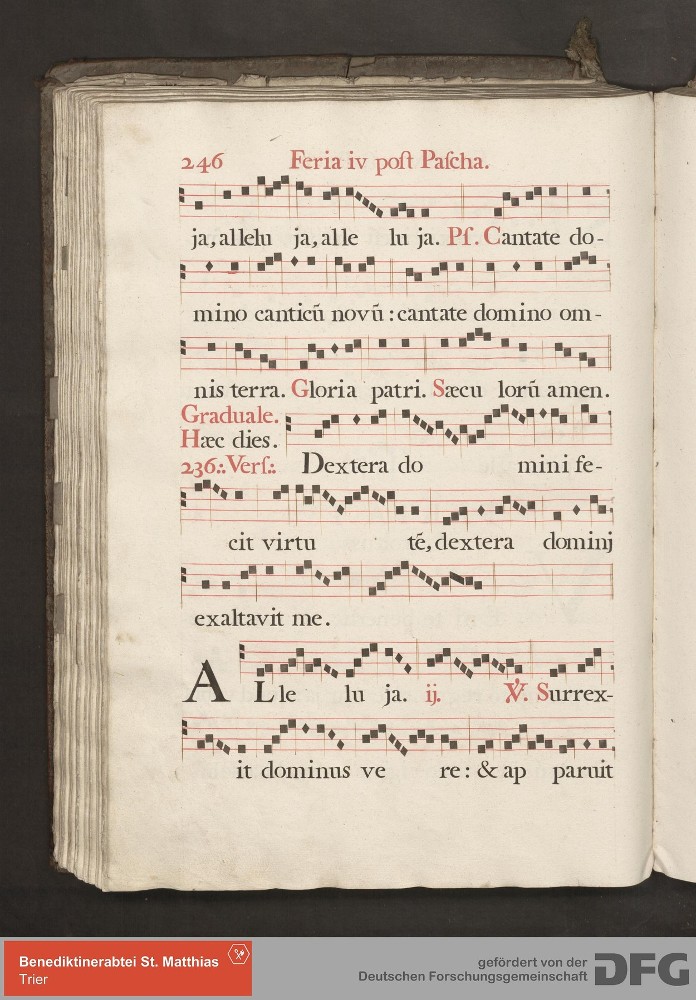 246 Feria iv poſt Paſcha.
ja, allelu ja, alle lu ja. Pſ. Cantate do-
mino canticū novū : cantate domino om-
nis terra. Gloria patri. Sæcu lorū amen.
Graduale.
Hæc dies.
236.:. Verſ.:. Dextera do mini fe-
cit virtu tē, dextera dominj
exaltavit me.
ALle lu ja. ij. ℣. Surrex-
it dominus ve re : & ap paruit
Benediktinerabtei St. Matthias
Trier
gefördert von der
Deutschen Forschungsgemeinschaft DFG